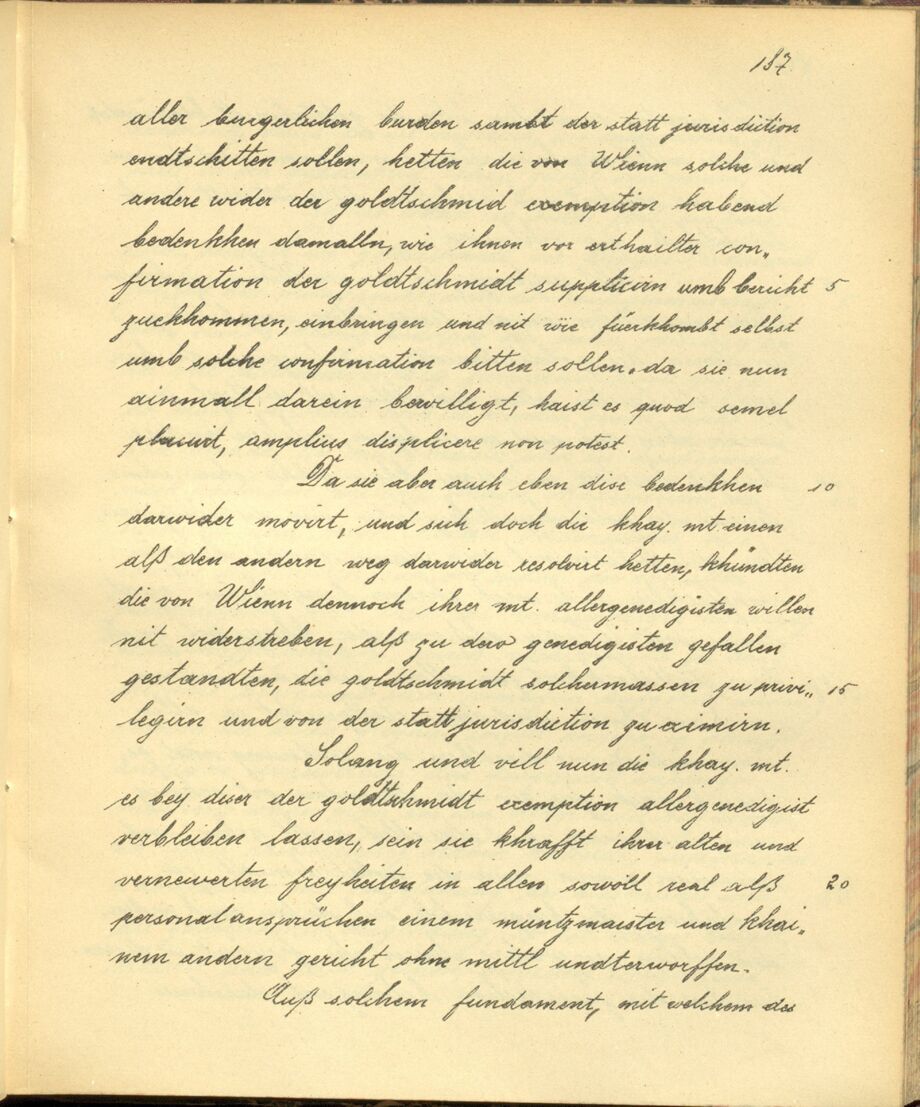 187
aller burgerlichen burden sambt der statt jurisdiction
endtschitten sollen, hetten die von Wienn solche und
andere wider der goldtschmid exemption habend
bedenkhen damalln, wie ihnen vor erthailter con„
firmation der goldtschmidt supplicirn umb bericht 5
zuekhommen, einbringen und nit wie füerkhombt selbst
umb solche confirmation bitten sollen. da sie nun
ainmall darein bewilligt, haist es quod semel
placuit, amplius displicere non potest.
Da sie aber auch eben dise bedenkhen 10
darwider movirt, und sich doch die khay. mt. einen
alß den andern weg darwider resolvirt hetten, khündten
die von Wienn dennoch ihrer mt. allergenedigisten willen
nit widerstreben, alß zu dero genedigisten gefallen
gestandten, die goldtschmidt solchermassen zu privi„ 15
legirn und von der statt jurisdiction zu eximirn.
Solang und vill nun die khay. mt.
es bey diser der goldtschmidt exemption allergenedigist
verbleiben lassen, sein sie khrafft ihrer alten und
vernewerten freyheiten in allen sowoll real alß 20
personal ansprüchen einem müntzmaister und khai„
nem andern gericht ohne mittl undterworffen.
Auß solchem fundament, mit welchem des